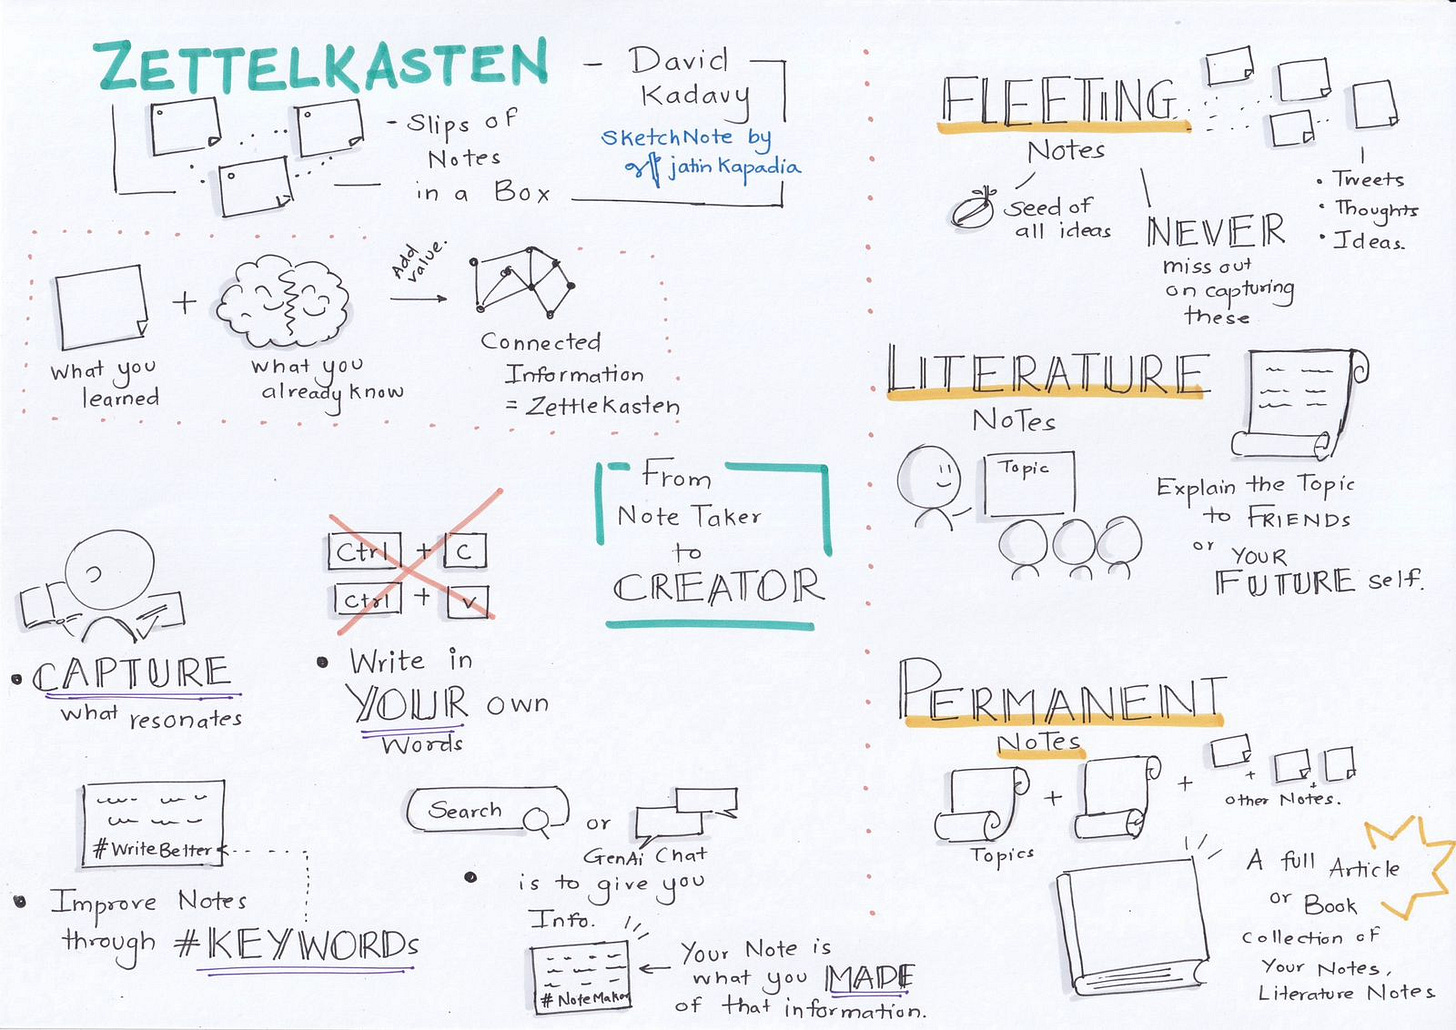 ZETTELKASTEN
- David
Kadavy
SketchNote by
jatin Kapadia
- Slips of
Notes
in a Box
What you
learned
+
what you
already know
Add
value.
Connected
Information
= Zettlekasten
From
Note Taker
to
CREATOR
• CAPTURE
what resonates
Ctrl + C
Ctrl + V
• Write in
YOUR own
Words
#WriteBetter
• Improve Notes
through #KEYWORDs
Search
or
GenAi Chat
• is to give you
Info.
#NoteMaker
Your Note is
what you MADE
of that information.
FLEETING
Notes
Seed of
all ideas
NEVER
miss out
on capturing
these
• Tweets
• Thoughts
• Ideas.
LITERATURE
NoTes
Topic
Explain the Topic
to FRIENDS
or YOUR
FUTURE self.
PERMANENT
NoTes
+ + + +
Topics
other Notes.
A full Article
or Book
Collection of
Your Notes,
Literature Notes